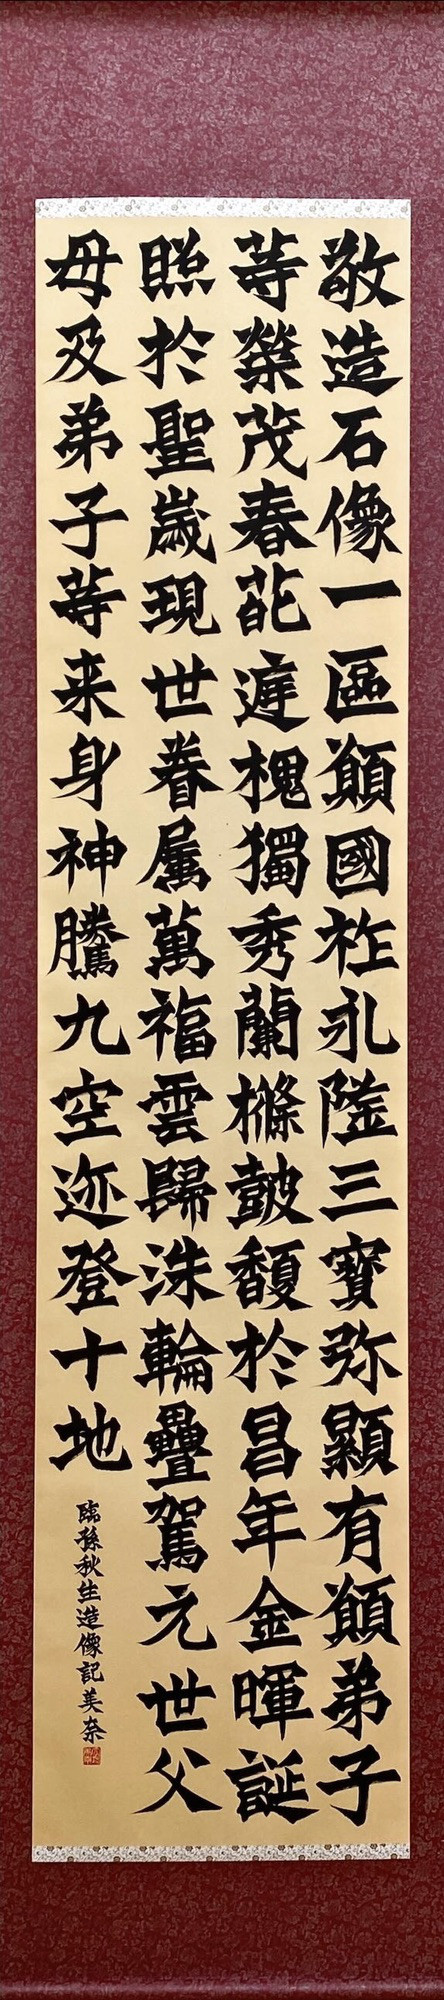 敬造石像一區顚國祚永隆三寶弥顯有顚弟子
等榮茂春葩遅槐獨秀蘭條鼓馥於昌年金暉誕
照於聖歲現世眷属萬福雲歸洙輪疊駕元世父
母及弟子等来身神騰九空迹登十地
臨孫秋生造像記美奈